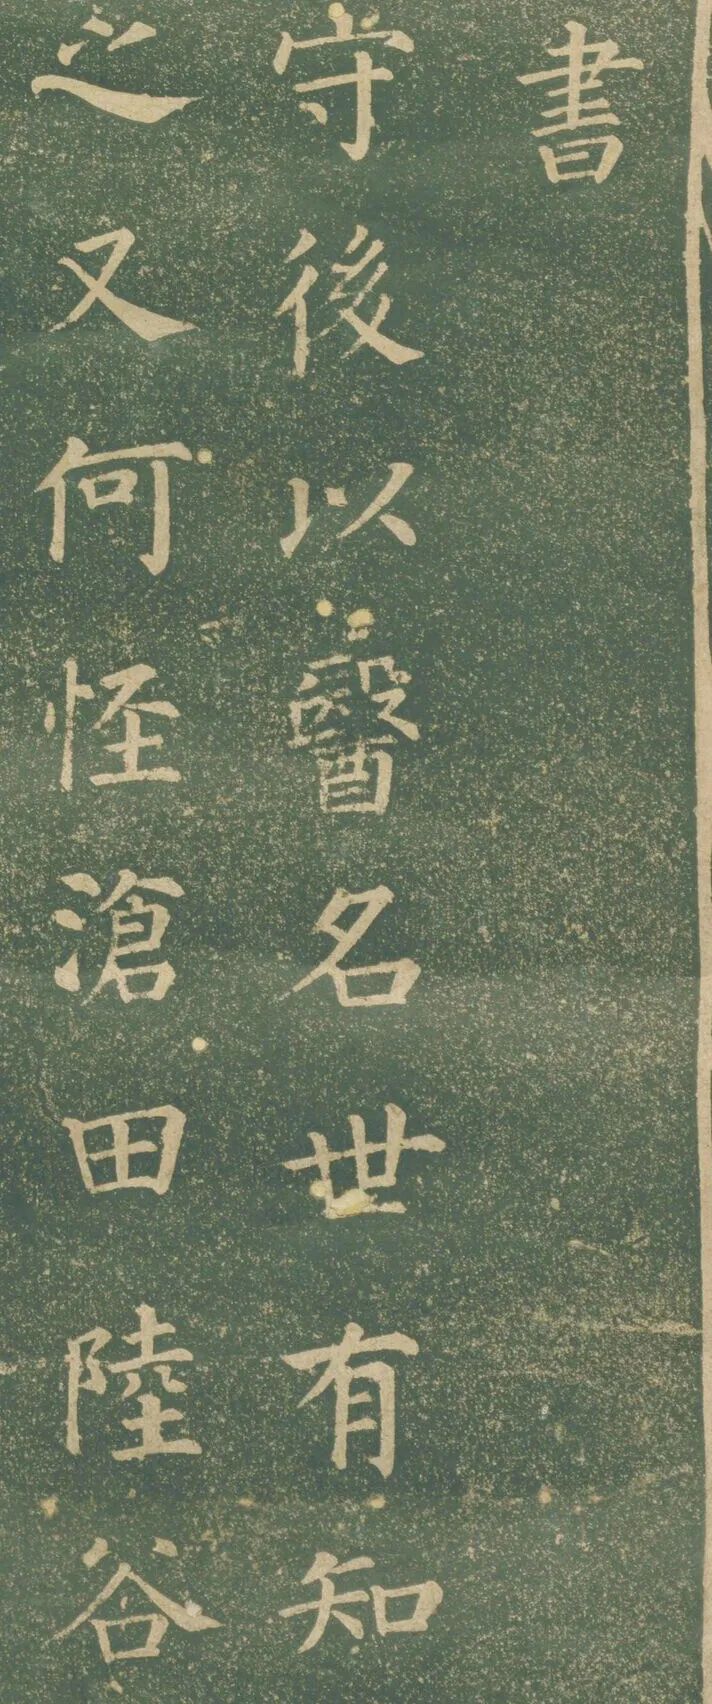 書
守後以醫名世有知
之又何怪滄田陸谷